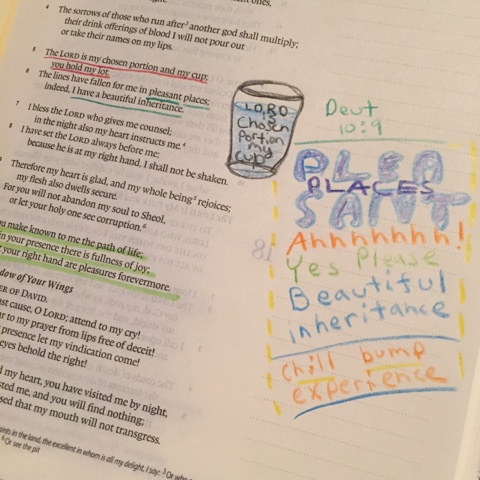 4 The sorrows of those who run after⁷ another god shall multiply;
their drink offerings of blood I will not pour out
or take their names on my lips.
5 The LORD is my chosen portion and my cup;
you hold my lot.
6 The lines have fallen for me in pleasant places;
indeed, I have a beautiful inheritance.
7 I bless the LORD who gives me counsel;
in the night also my heart instructs me.⁴
8 I have set the LORD always before me;
because he is at my right hand, I shall not be shaken.
Therefore my heart is glad, and my whole being⁵ rejoices;
my flesh also dwells secure.
For you will not abandon my soul to Sheol,
or let your holy one see corruption.⁶
make known to me the path of life;
in your presence there is fullness of joy;
your right hand are pleasures forevermore.
of Your Wings
OF DAVID.
just cause, O LORD; attend to my cry!
to my prayer from lips free of deceit!
presence let my vindication come!
eyes behold the right!
my heart, you have visited me by night,
me, and you will find nothing;
that my mouth will not transgress.
in the land, the excellent in whom is all my delight, I say:
⁶Or see the pit
LORD
is
Chosen
Portion
my
cup
Deut
10:9
PLEA
PLACES
SANT
Ahhhhhhh!
Yes Please
Beautiful
inheritance
chill bump
experience